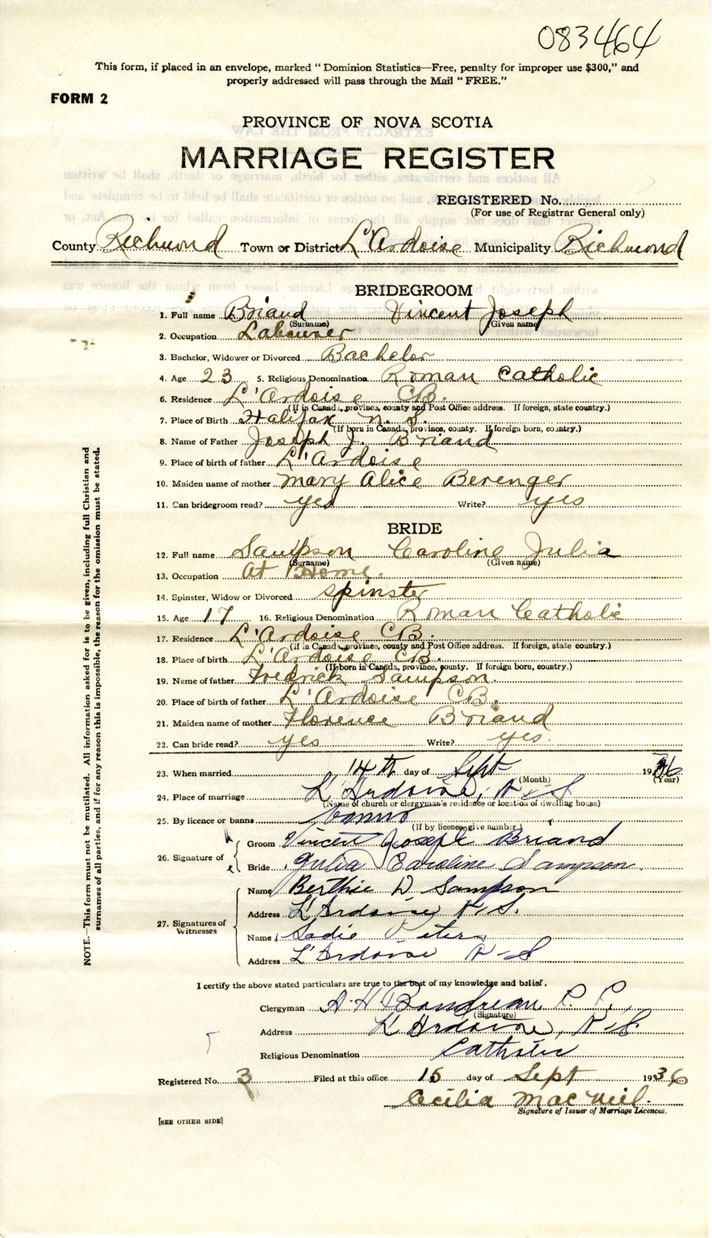 083464
This form, if placed in an envelope, marked "Dominion Statistics—Free, penalty for improper use $300," and
properly addressed will pass through the Mail "FREE."
FORM 2
PROVINCE OF NOVA SCOTIA
MARRIAGE REGISTER
REGISTERED No.
(For use of Registrar General only)
County Richmond Town or District L'Ardoise Municipality Richmond
BRIDEGROOM
1. Full name Briand Vincent Joseph
(Surname) (Given name)
2. Occupation Labourer
3. Bachelor, Widower or Divorced Bachelor
4. Age 23 5. Religious Denomination Roman Catholic
6. Residence L'Ardoise CB.
(If in Canada, province, county and Post Office address. If foreign, state country.)
7. Place of Birth Halifax N.S.
(If born in Canada, province, county. If foreign born, country.)
8. Name of Father Joseph J. Briand
9. Place of birth of father L'Ardoise
10. Maiden name of mother Mary Alice Berenger
11. Can bridegroom read? yes Write? yes
BRIDE
12. Full name Sampson Caroline Julia
(Surname) (Given name)
13. Occupation At Home.
14. Spinster, Widow or Divorced Spinster
15. Age 17 16. Religious Denomination Roman Catholic
17. Residence L'Ardoise CB.
(If in Canada, province, county and Post Office address. If foreign, state country.)
18. Place of birth L'Ardoise CB.
(If born in Canada, province, county. If foreign born, country.)
19. Name of father Fredrick Sampson.
20. Place of birth of father L'Ardoise CB.
21. Maiden name of mother Florence Briand
22. Can bride read? yes Write? yes.
23. When married 14th day of Sept 1936
(Month) (Year)
24. Place of marriage L'Ardoise, N-S
(Name of church or clergyman's residence or location of dwelling house)
25. By licence or banns banns
(If by licence, give number)
26. Signature of
Groom Vincent Joseph Briand
Bride Julia Caroline Sampson.
27. Signatures of Witnesses
Name Berthie D Sampson
Address L'Ardoise N.S.
Name Sadie
Address L'Ardoise N-S
I certify the above stated particulars are true to the best of my knowledge and belief.
Clergyman A H Boudreau P. P.,
(Signature)
Address L'Ardoise, N-S.
Religious Denomination Catholic
Registered No. 3 Filed at this office 15 day of Sept 1936
Cecilia MacNeil.
Signature of Issuer of Marriage Licences.
[SEE OTHER SIDE]
NOTE.—This form must not be mutilated. All information asked for is to be given, including full Christian and
surnames of all parties, and if for any reason this is impossible, the reason for the omission must be stated.